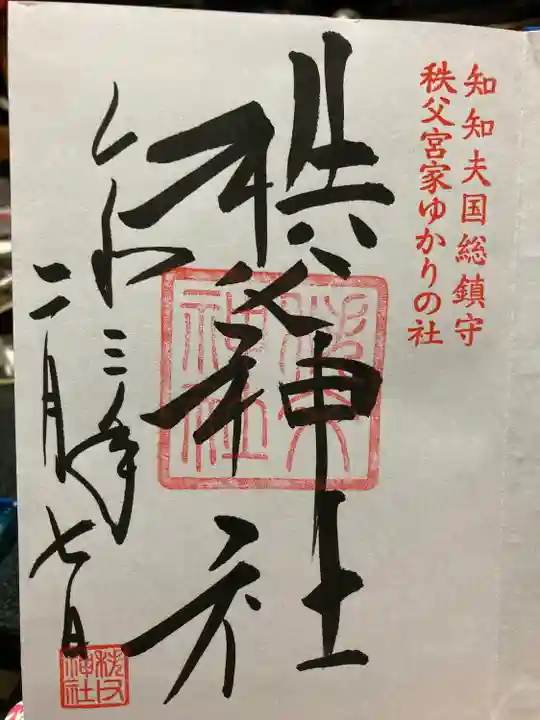 知知夫国総鎮守
秩父宮家ゆかりの社
秩父神社
令和三年
二月七日
秩父神社
秩父神社